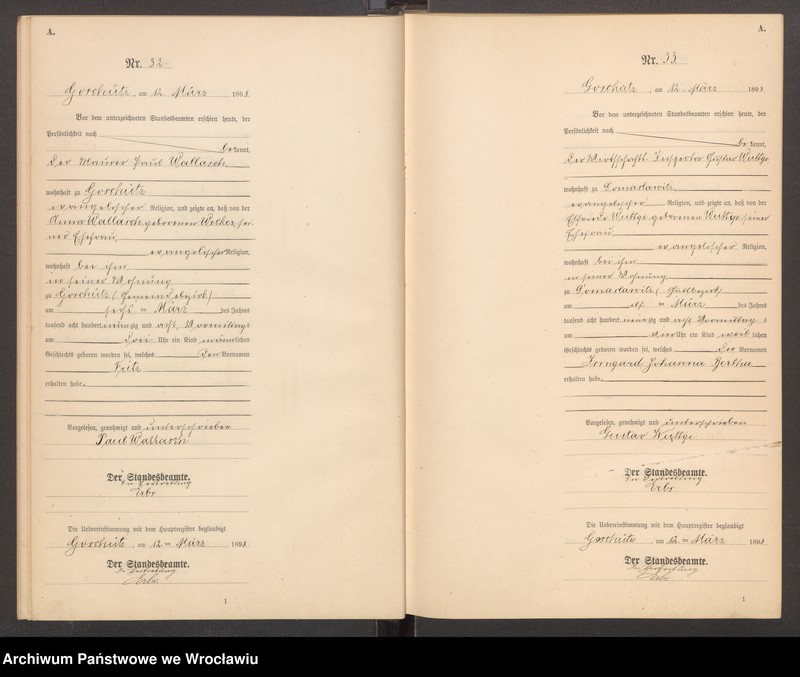 A.
Nr. 32
Goschütz, am 12. März 1898
Vor dem unterzeichneten Standesbeamten erschien heute, der
Persönlichkeit nach
bekannt,
der Maurer Paul Wallasch
wohnhaft zu Goschütz
evangelischer Religion, und zeigte an, daß von der
Anna Wallasch geborenen
Ehefrau,
evangelischer Religion,
wohnhaft bei ihm
in seiner Wohnung
zu Goschütz (Gemeindebezirk)
am sechsten März des Jahres
tausend acht hundert neunzig und acht, Vormittags
um drei Uhr ein Kind männlichen
Geschlechts geboren worden sei, welches den Vornamen
Fritz
erhalten habe.
Vorgelesen, genehmigt und unterschrieben
Paul Wallasch
Der Standesbeamte.
In Vertretung
Erbs
Die Uebereinstimmung mit dem Hauptregister beglaubigt
Goschütz, am 12ten März 1898
Der Standesbeamte.
In Vertretung
Erbs
1
A.
Nr. 33
Goschütz, am 12. März 1898
Vor dem unterzeichneten Standesbeamten erschien heute, der
Persönlichkeit nach
bekannt,
der Wirthschafts-Inspector Gustav Wuttge
wohnhaft zu Domaslawitz
evangelischer Religion, und zeigte an, daß von der
Wuttge geborenen Wuttge seiner
Ehefrau,
evangelischer Religion,
wohnhaft bei ihm
in seiner Wohnung
zu Domaslawitz (Gutsbezirk)
am elften März des Jahres
tausend acht hundert neunzig und acht Vormittags
um vier Uhr ein Kind weiblichen
Geschlechts geboren worden sei, welches die Vornamen
Irmgard Johanna Bertha
erhalten habe.
Vorgelesen, genehmigt und unterschrieben
Gustav Wuttge
Der Standesbeamte.
In Vertretung
Erbs
Die Uebereinstimmung mit dem Hauptregister beglaubigt
Goschütz, am 12ten März 1898
Der Standesbeamte.
In Vertretung
Erbs
1
Archiwum Państwowe we Wrocławiu